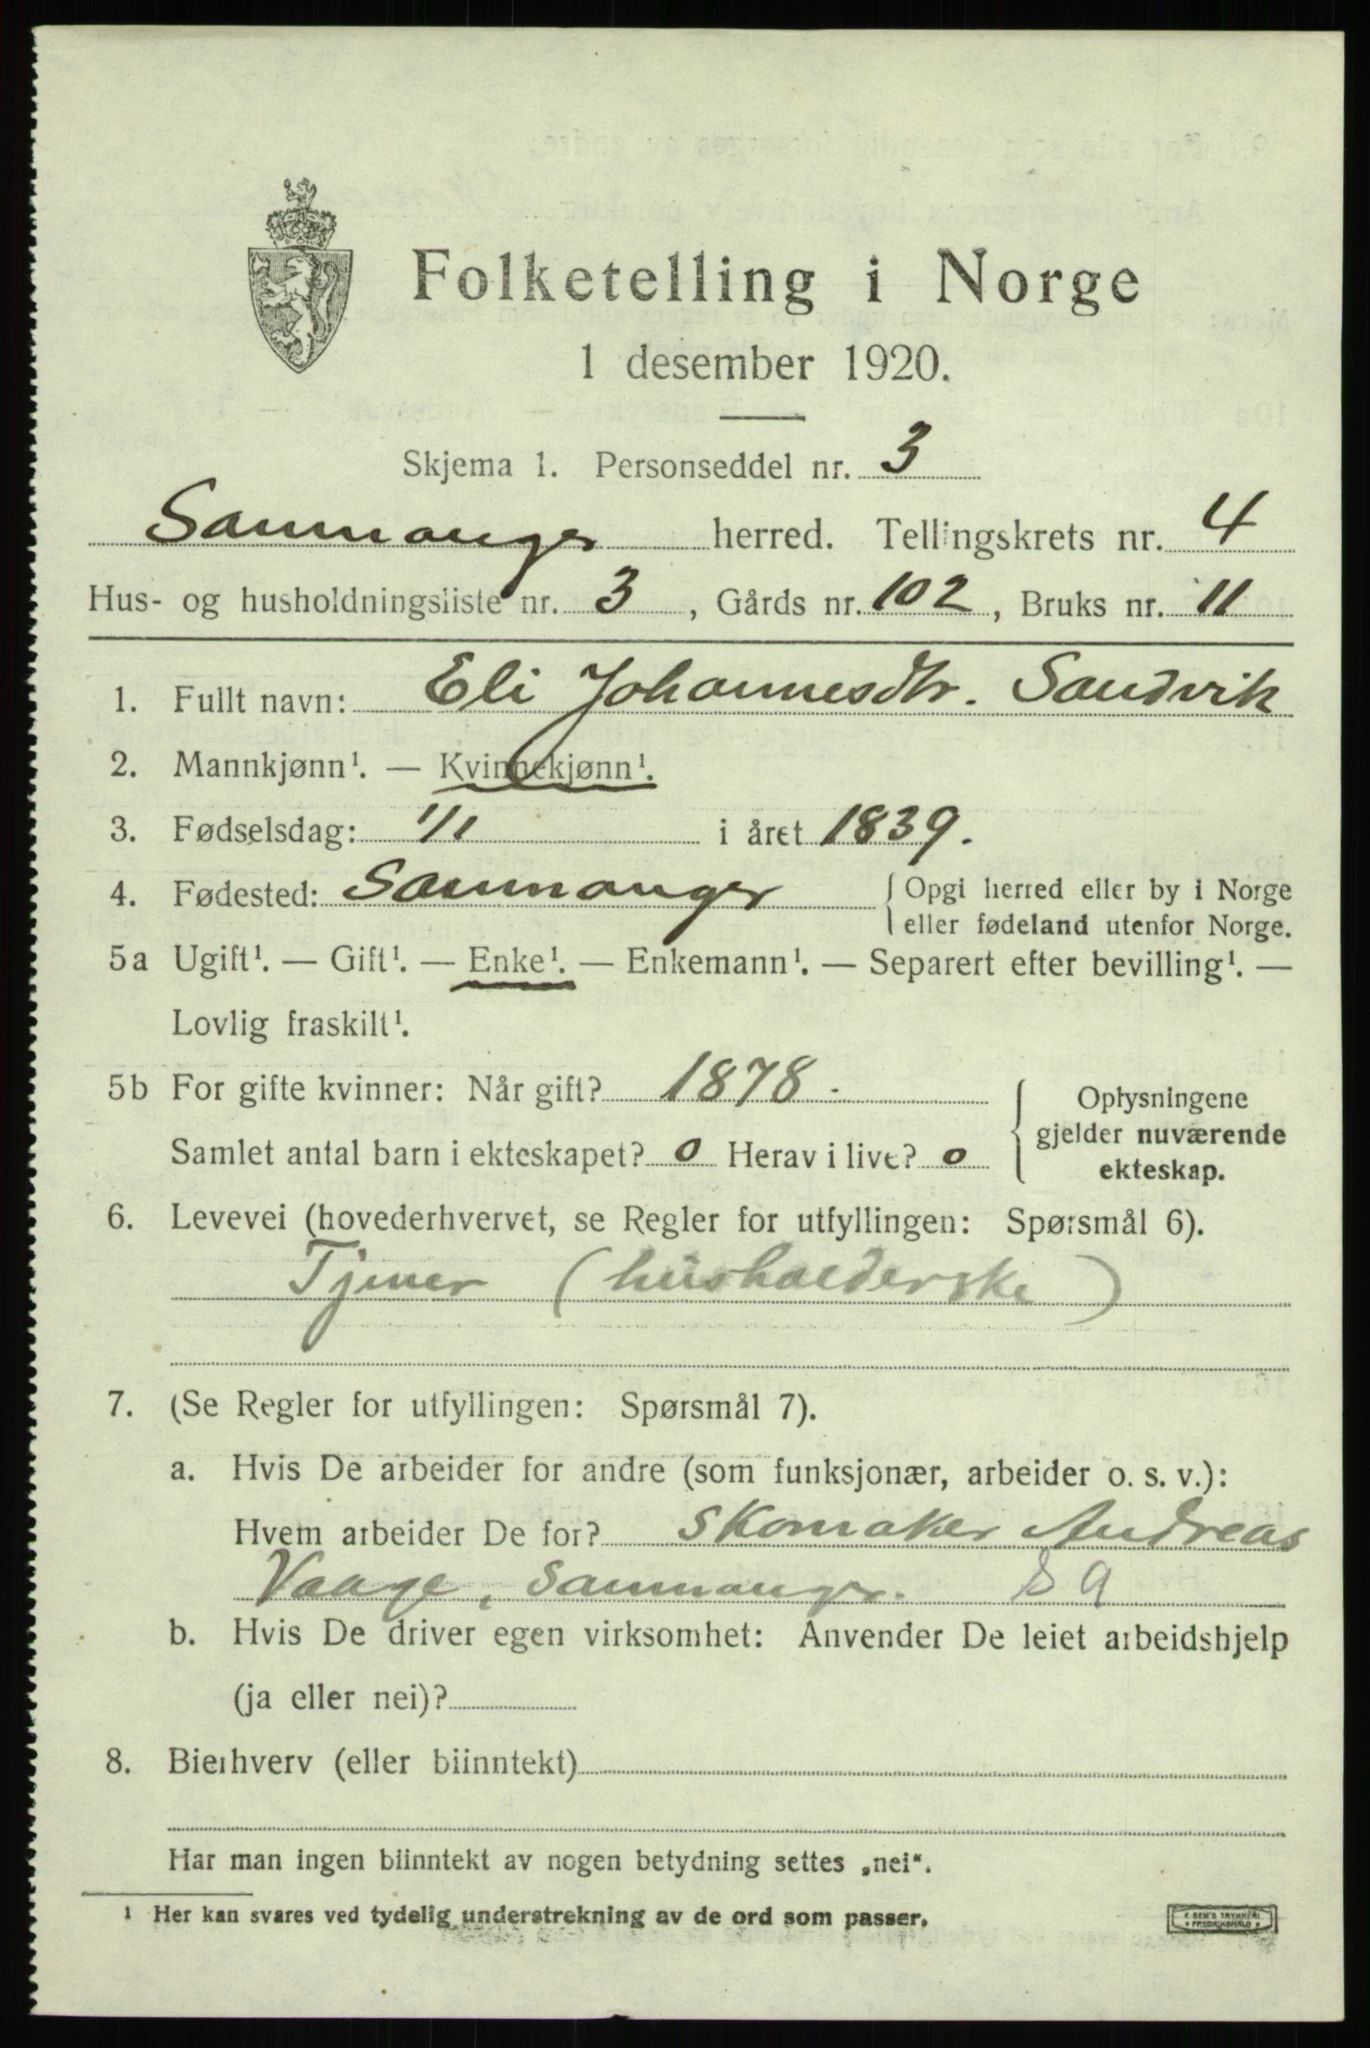 Folketelling i Norge
1 desember 1920.
Skjema 1. Personseddel nr. 3
Samnanger herred. Tellingskrets nr. 4
Hus- og husholdningsliste nr. 3, Gårds nr. 102, Bruks nr. 11
1. Fullt navn: Eli Johannesdtr. Sandvik
2. Mannkjønn¹. — Kvinnekjønn¹.
3. Fødselsdag: 1/1 i året 1839.
4. Fødested: Samnanger { Opgi herred eller by i Norge
eller fødeland utenfor Norge.
5a Ugift¹. — Gift¹. — Enke¹. — Enkemann¹. — Separert efter bevilling¹. —
Lovlig fraskilt¹.
5b For gifte kvinner: Når gift? 1878.
Samlet antal barn i ekteskapet? 0 Herav i live? 0
{ Oplysningene
gjelder nuværende
ekteskap.
6. Levevei (hovederhvervet, se Regler for utfyllingen: Spørsmål 6).
Tjener (husholderske)
7. (Se Regler for utfyllingen: Spørsmål 7).
a. Hvis De arbeider for andre (som funksjonær, arbeider o. s. v.):
Hvem arbeider De for? Skomaker Andreas
Vaage, Samnanger.
b. Hvis De driver egen virksomhet: Anvender De leiet arbeidshjelp
(ja eller nei)?
8. Bierhverv (eller biinntekt)
Har man ingen biinntekt av nogen betydning settes „nei“.
¹ Her kan svares ved tydelig understrekning av de ord som passer.
E. SEM'S TRYKKERI
FREDRIKSHALD